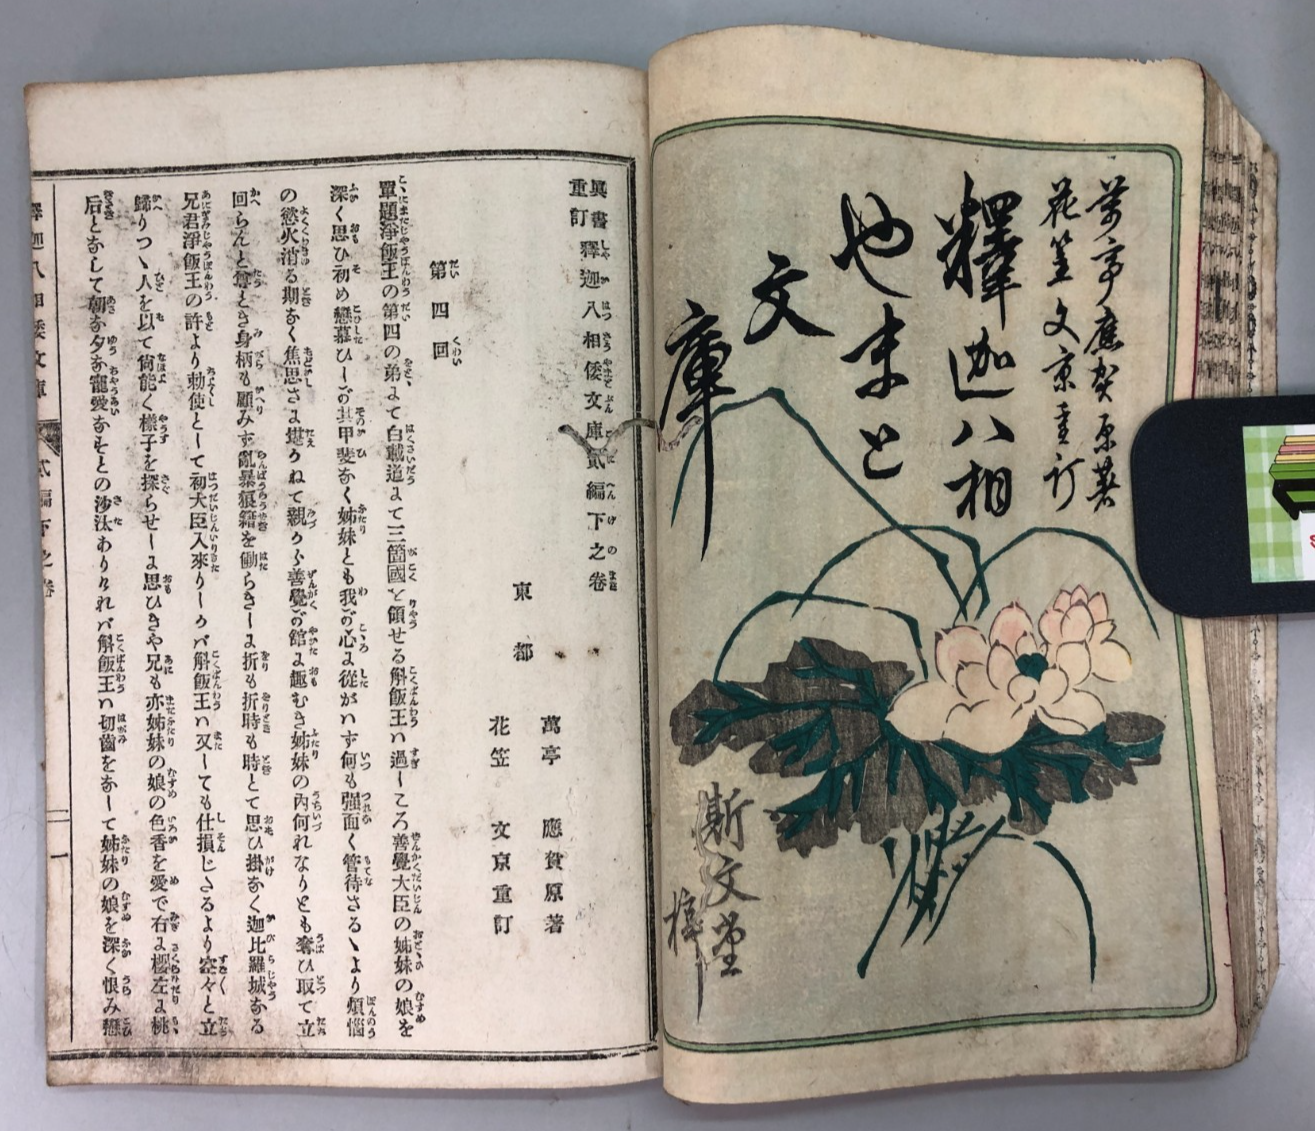 萬亭應賀原著
花笠文京重訂
釋迦八相
也末と
文
庫
斯文堂
梓
異書
重訂
釋迦八相倭文庫貳編下之卷
東都
萬亭應賀原著
花笠文京重訂
第四回
單題淨飯王の第四の弟よて白戴道よて三箇國と領せる斛飯王ハ過しころ善覺大臣の姉妹の娘を
深く思ひ初め戀慕ひしが其甲斐なく姉妹とも我が心よ從がハす何も强面く管待さるゝより煩惱
の慾火消る期なく焦思さよ堪かねて親から善覺が館よ趣むき姉妹の內何れなりとも奪ひ取て立
回らんと尊とき身柄も顧みす亂暴狼籍を働らきしよ折も折時も時とて思ひ掛なく迦比羅城なる
兄君淨飯王の許より勅使として初大臣入來りしかバ斛飯王ハ又しても仕損じたるより空々と立
歸りつゝ人を以て尙能く樣子を探らせしよ思ひきや兄も亦姉妹の娘の色香を愛で右よ櫻左よ桃
后となして朝な夕な寵愛なすとの沙汰ありけれバ斛飯王ハ切齒をなして姉妹の娘を深く恨み戀
釋迦八相倭文庫
貳編下之卷
一